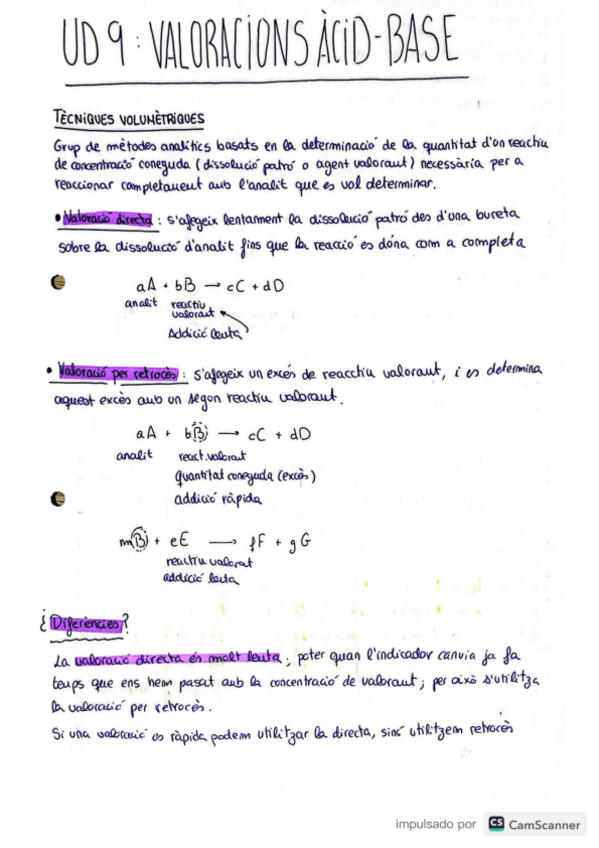 UD 9: VALORACIONS ÀCID-BASE
TÈCNIQUES VOLUMÈTRIQUES
Grup de mètodes analítics basats en la determinació de la quantitat d'un reactiu
de concentració coneguda (dissolució patró o agent valorant) necessària per a
reaccionar completament amb l'analit que es vol determinar.
• Valoració directa: s'afegeix lentament la dissolució patró des d'una bureta
sobre la dissolució d'analit fins que la reacció es dóna com a completa
aA + bB → cC + dD
analit reactiu
valorant
Addició lenta
• Valoració per retrocés: s'afegeix un excés de reacctiu valorant, i es determina
aquest excès amb un segon reactiu valorant.
aA + b(B) → cC + dD
analit react.valorat
quantitat coneguda (excès)
addició ràpida
m(B) + eE → fF + gG
reactiu valorat
addició lenta
¿Diferències?
La valoració directa és molt lenta; poter quan l'indicador canvia ja fa
temps que ens hem passat amb la concentració de valorant; per això s'utilitza
la valoració per retrocès.
Si una valoració es ràpida podem utilitzar la directa, sinó utilitzem retrocès
impulsado por CS CamScanner